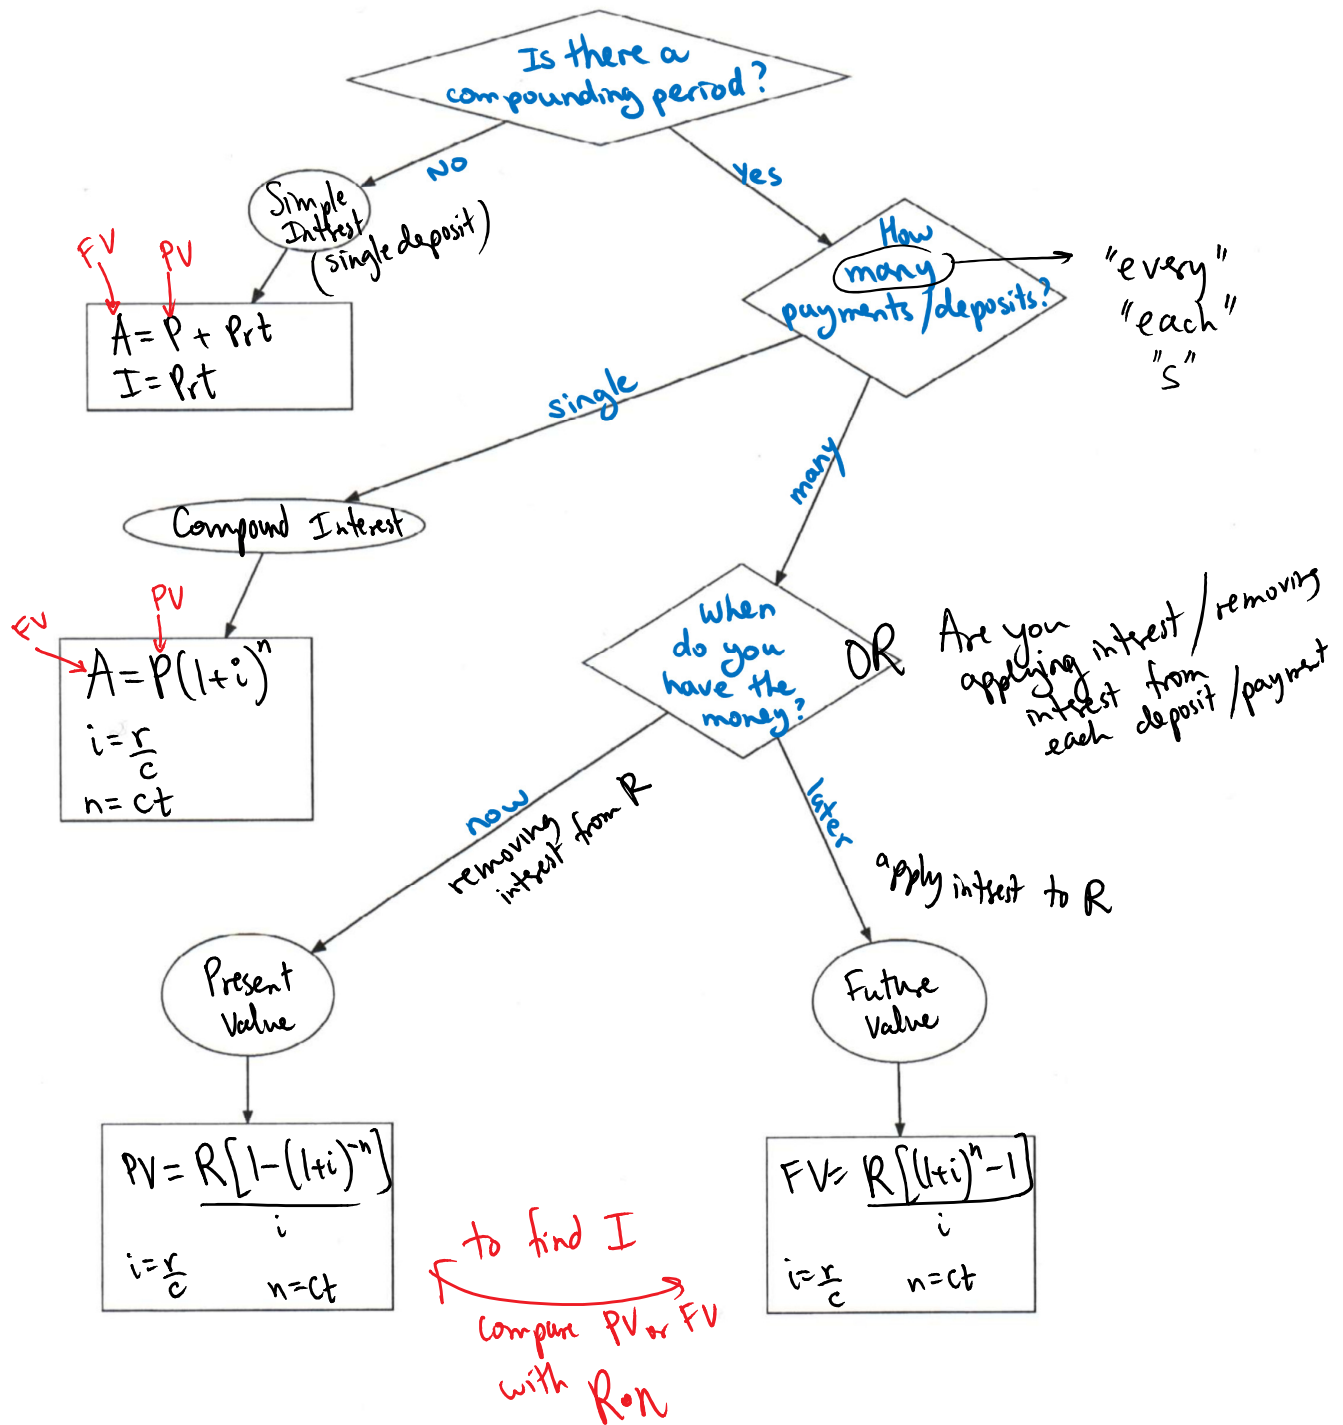 Is there a
compounding period?
No
Yes
Simple
Intrest
(single deposit)
FV
PV
A = P + Prt
I = Prt
How
many
payments/deposits?
"every"
"each"
"s"
single
many
Compound Interest
FV
PV
A = P(1+i)^n
i = r/c
n = ct
When
do you
have the
money?
OR
Are you
applying interest/removing
intrest from
each deposit/payment
now
removing
interest from R
later
apply intrest to R
Present
Value
Future
Value
PV = R[1-(1+i)^-n]
i
i = r/c n = ct
FV = R[(1+i)^n - 1]
i
i = r/c n = ct
to find I
compare PV or FV
with R•n